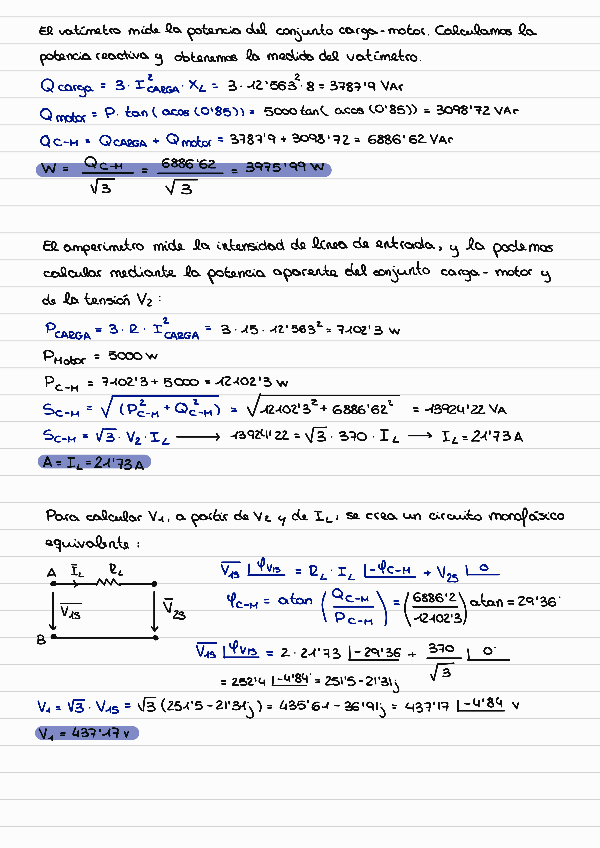 El vatímetro mide la potencia del conjunto carga-motor. Calculamos la
potencia reactiva y obtenemos la medida del vatímetro.
Q carga = 3 · I²CARGA · XL = 3 · 12'563² · 8 = 3787'9 VAr
Qmotor = P · tan (acos (0'85)) = 5000 tan( acos (0'85)) = 3098'72 VAr
QC-M = QCARGA + Qmotor = 3787'9 + 3098'72 = 6886'62 VAr
W = QC-M / √3 = 6886'62 / √3 = 3975'99 W
El amperímetro mide la intensidad de línea de entrada, y la podemos
calcular mediante la potencia aparente del conjunto carga-motor y
de la tensión V2 :
PCARGA = 3 · R · I²CARGA = 3 · 15 · 12'563² = 7102'3 W
PMotor = 5000 W
PC-M = 7102'3 + 5000 = 12102'3 W
SC-M = √(P²C-M + Q²C-M) = √12102'3² + 6886'62² = 13924'22 VA
SC-M = √3 · V2 · IL → 13924'22 = √3 · 370 · IL → IL = 21'73 A
A = IL = 21'73 A
Para calcular V1, a partir de V2 y de IL, se crea un circuito monofásico
equivalente :
A IL RL
V1S
V2S
B
V1S |φV1S = RL · IL |-φC-M + V2S |0
φC-M = atan (QC-M / PC-M) = (6886'2 / 12102'3) atan = 29'36°
V1S |φV1S = 2 · 21'73 |-29'36 + 370 / √3 |0°
= 252'4 |-4'84° = 251'5 - 21'31j
V1 = √3 · V1S = √3 (251'5 - 21'31j) = 435'61 - 36'91j = 437'17 |-4'84 V
V1 = 437'17 V